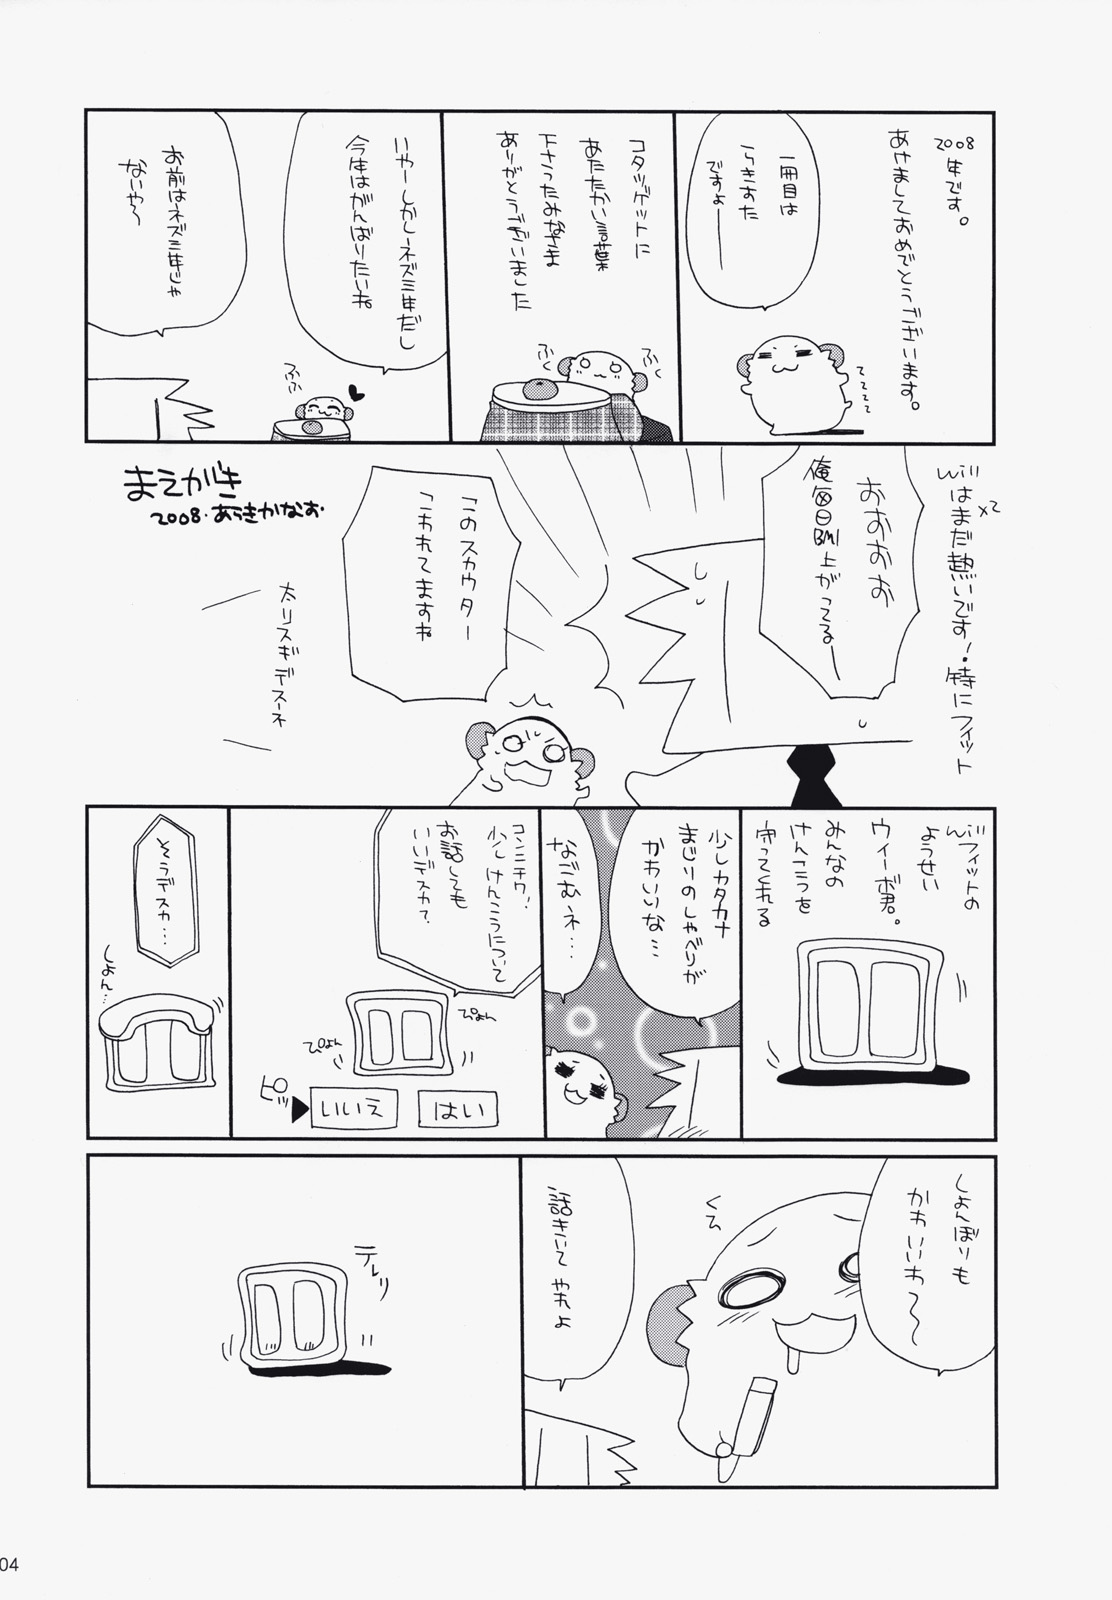 2008
年です。
あけましておめでとうございます。
一冊目は
らきすた
ですよ――
てててて
コタツゲットに
あたたかい言葉
下さったみなさま
ありがとうございました
ふくふく
いやーしかしネズミ年だし
今年はがんばりたいね
ふふ
お前はネズミ年じゃ
ないや〜
まえがき
2008.あらきかなお.
wiiはまだ熱いです!特にフィット
x2
おおおお
俺毎日BMI上がってる――
このスカウター
こわれてますね
太リスギデスーネ
wiiフィットの
ようせい
ウィーボ君。
みんなの
けんこうを
守ってくれる
少しカタカナ
まじりのしゃべりが
かわいいな…
なごむネ…
コンニチワ!
少しけんこうについて
お話しても
いいデスカ?
ぴょん
ぴょん
ピッ
いいえ
はい
そうデスカ…
しょん…
しょんぼりも
かわいいわ〜
くぅ
話きいて やれよ
テレリ
04